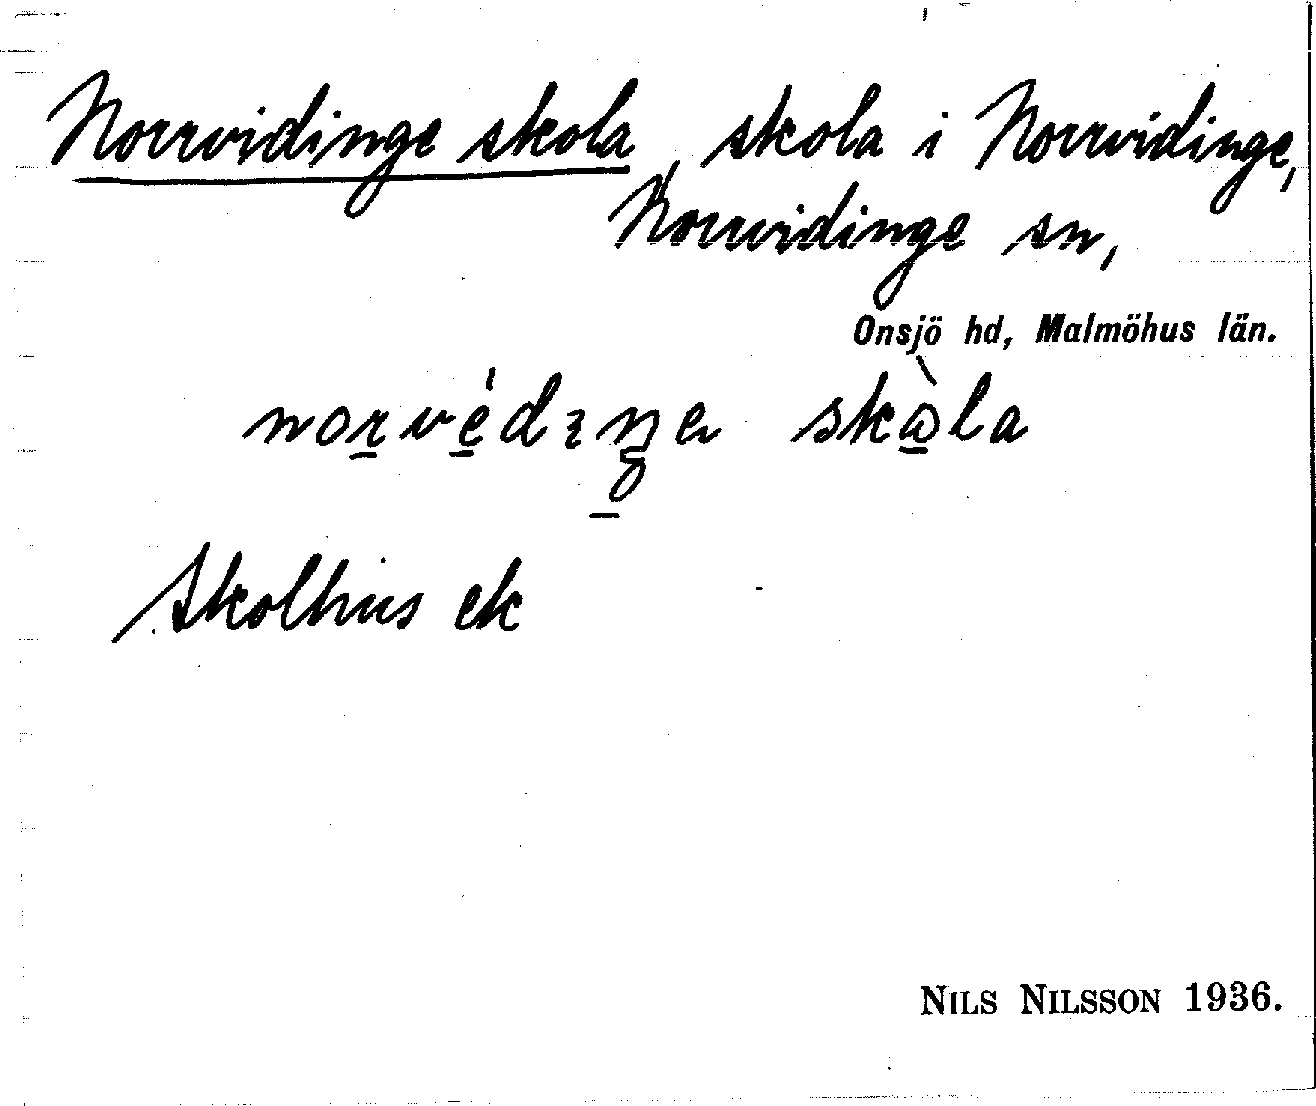 Norrvidinge skola, skola i Norrvidinge,
Norrvidinge sn,
Onsjö hd, Malmöhus län.
norvédıŋe skòla
Skolhus ek
NILS NILSSON 1936.